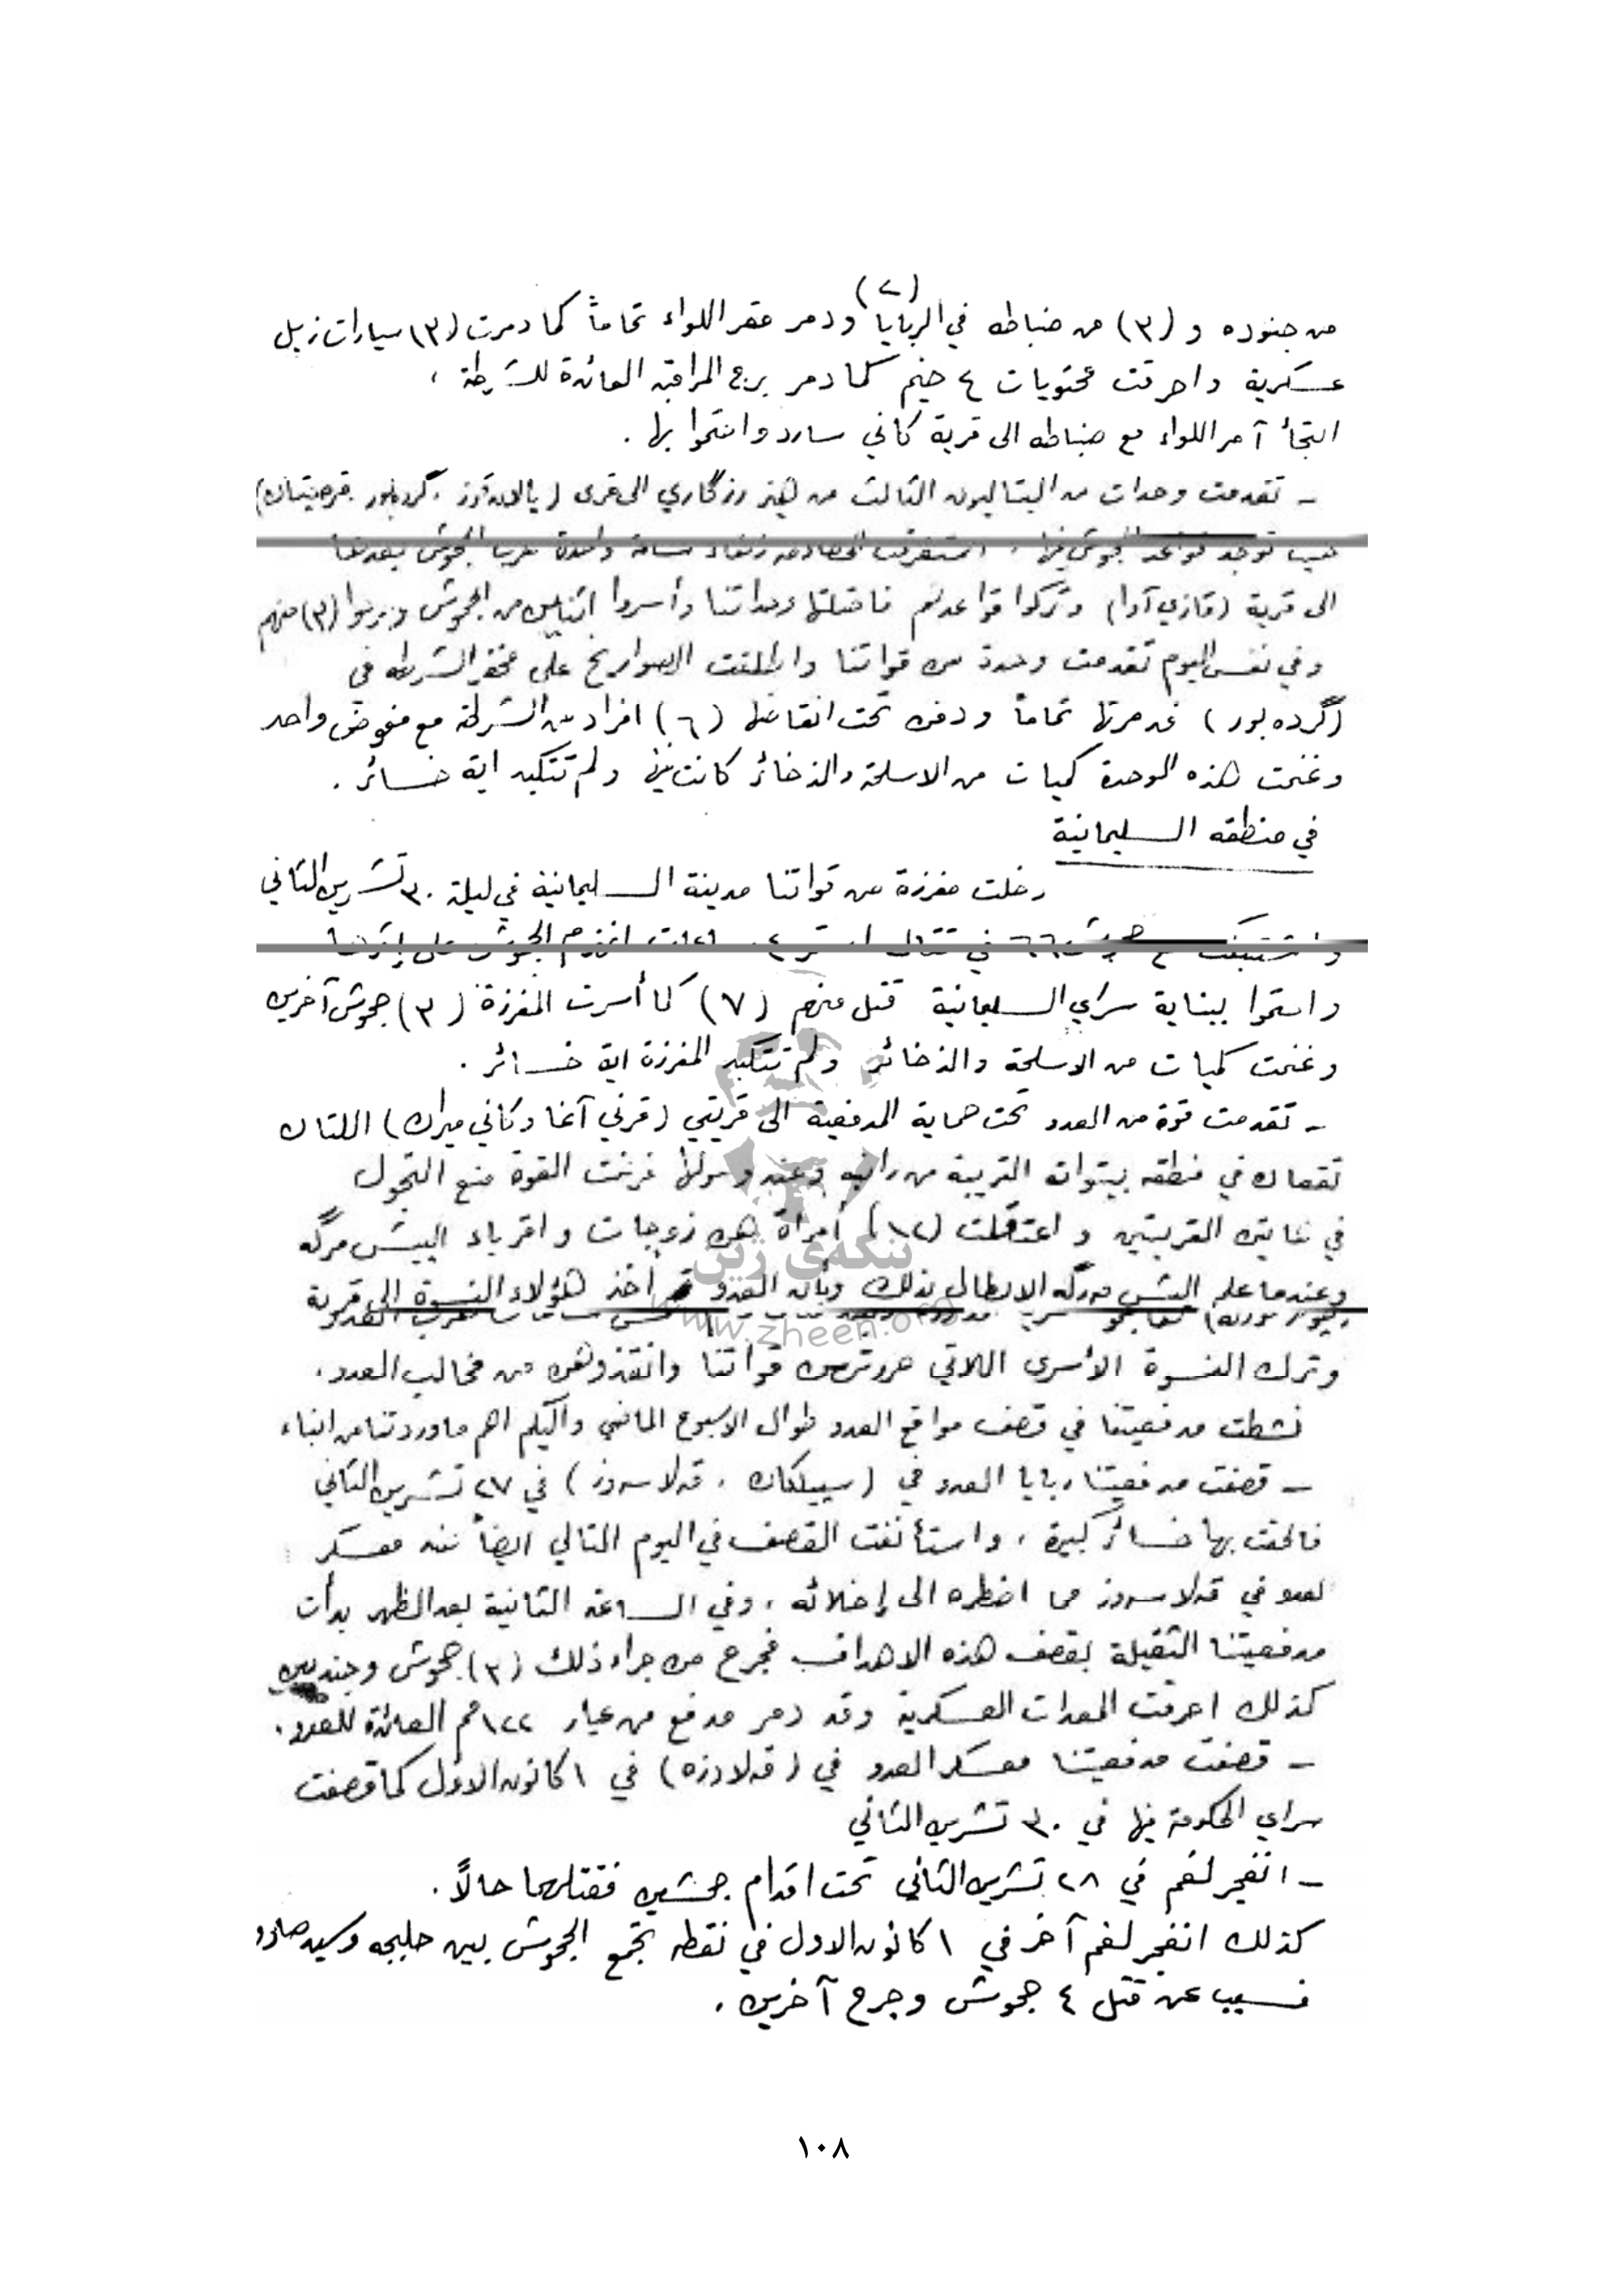 (٢)
من جنوده و (٣) من ضباطه في الربايا ودمر مقر اللواء تماماً كما دمرت (٣) سيارات زيل
عسكرية واحرقت محتويات ٤ خيم كما دمر برج المراقبة العائدة للشرطة ،
التجأ آمر اللواء مع ضباطه الى قرية كاني سارد واحتموا بها .
- تقدمت وحدات من البتاليون الثالث من هيز رزگاري الى قرى
حيث توجد قواعد الجحوش فيها ، استغرقت المصادمة زهاء ساعة واحدة هرب الجحوش بعدها
الى قرية (قازي آوا) وتركوا قواعدهم فاحتلتها وحداتنا وأسروا اثنين من الجحوش وجرحوا (٣) منهم
وفي نفس اليوم تقدمت وحدة من قواتنا واطلقت الصواريخ على مخفر الشرطة في
(گرده بور) فدمرتها تماماً ودفن تحت انقاضها (٦) افراد من الشرطة مع مفوض واحد
وغنمت هذه الوحدة كميات من الاسلحة والذخائر كانت فيها ولم تتكبد اية خسائر .
في منطقة السليمانية
دخلت مفرزة من قواتنا مدينة السليمانية في ليلة ٣٠ تشرين الثاني
واشتبكت مع جحوش في قتال استمر ٤ ساعات انهزم الجحوش على إثرها
واحتموا ببناية سراي السليمانية قتل منهم (٧) كما أسرت المفرزة (٣) جحوش آخرين
وغنمت كميات من الاسلحة والذخائر ولم تتكبد المفرزة اية خسائر .
- تقدمت قوة من العدو تحت حماية المدفعية الى قريتي (قرني آغا وكاني ميران) اللتان
تقعان في منطقة بيتواتة القريبة من رانيه وعند وصولها فرضت القوة منع التجول
في هاتين القريتين و اعتقلت (١٢) أمرأة هن زوجات و اقرباء البيش مرگه
وعندما علم البيش مه رگه الابطال بذلك وبأن العدو قد أخذ هؤلاء النسوة الى قرية
هرب العدو
وترك النسوة الأسرى اللاتي حررتهن قواتنا وانقذوهن من مخالب العدو .
نشطت مدفعيتنا في قصف مواقع العدو طوال الاسبوع الماضي واليكم اهم ما وردتنا من انباء
- قصفت مدفعيتنا ربايا العدو في (سيلكان ، قه لا سه وز) في ٢٧ تشرين الثاني
فالحقت بها خسائر كبيرة ، واستأنفت القصف في اليوم التالي ايضاً ضد معسكر
لعدو في قه لا سه وز مما اضطره الى إخلائه ، وفي الساعة الثانية بعد الظهر بدأت
مدفعيتنا الثقيلة بقصف هذه الاهداف فجرح من جراء ذلك (٣) جحوش وجنديين
كذلك احرقت المعدات العسكرية وقد دمر مدفع من عيار ١٢٢ مم العائدة للعدو .
- قصفت مدفعيتنا معسكر العدو في (قه لا دزه) في ١ كانون الاول كما قصفت
سراي الحكومة فيها في ٣٠ تشرين الثاني
- انفجر لغم في ٢٨ تشرين الثاني تحت اقدام جحشين فقتلهما حالاً .
كذلك انفجر لغم آخر في ١ كانون الاول في نقطة تجمع الجحوش بين حلبجه وسيد صادق
فسبب عن قتل ٤ جحوش وجرح آخرين .
بنكەی ژین
www.zheen.org
١٠٨